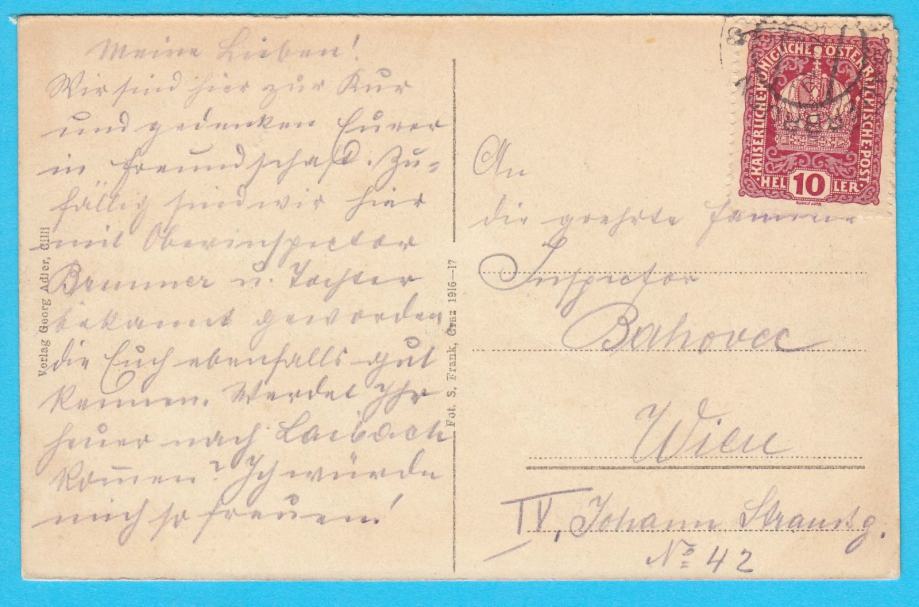 Meine Lieben!
Wir sind hier zur Kur
und gedenken Eurer
in Freundschaft. Zu-
fällig sind wir hier
mit Oberinspector
Brunner u. Tochter
bekannt geworden,
die Euch ebenfalls gut
kennen. Werdet Ihr
heuer nach Laibach
kommen? Ich würde
mich so freuen!
Verlag Georg Adler, Cilli
Fot. S. Frank, Graz 1916—17
KAISERLICHE KÖNIGLICHE ÖSTERREICHISCHE POST
HELLER
10
An
die geehrte Familie
Inspector
Bahovec
Wien
IV, Johann Straussg.
No 42